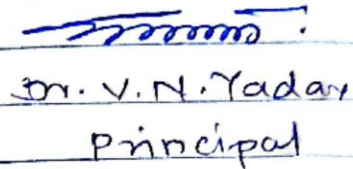 Dr. V. N. Yadav
Principal